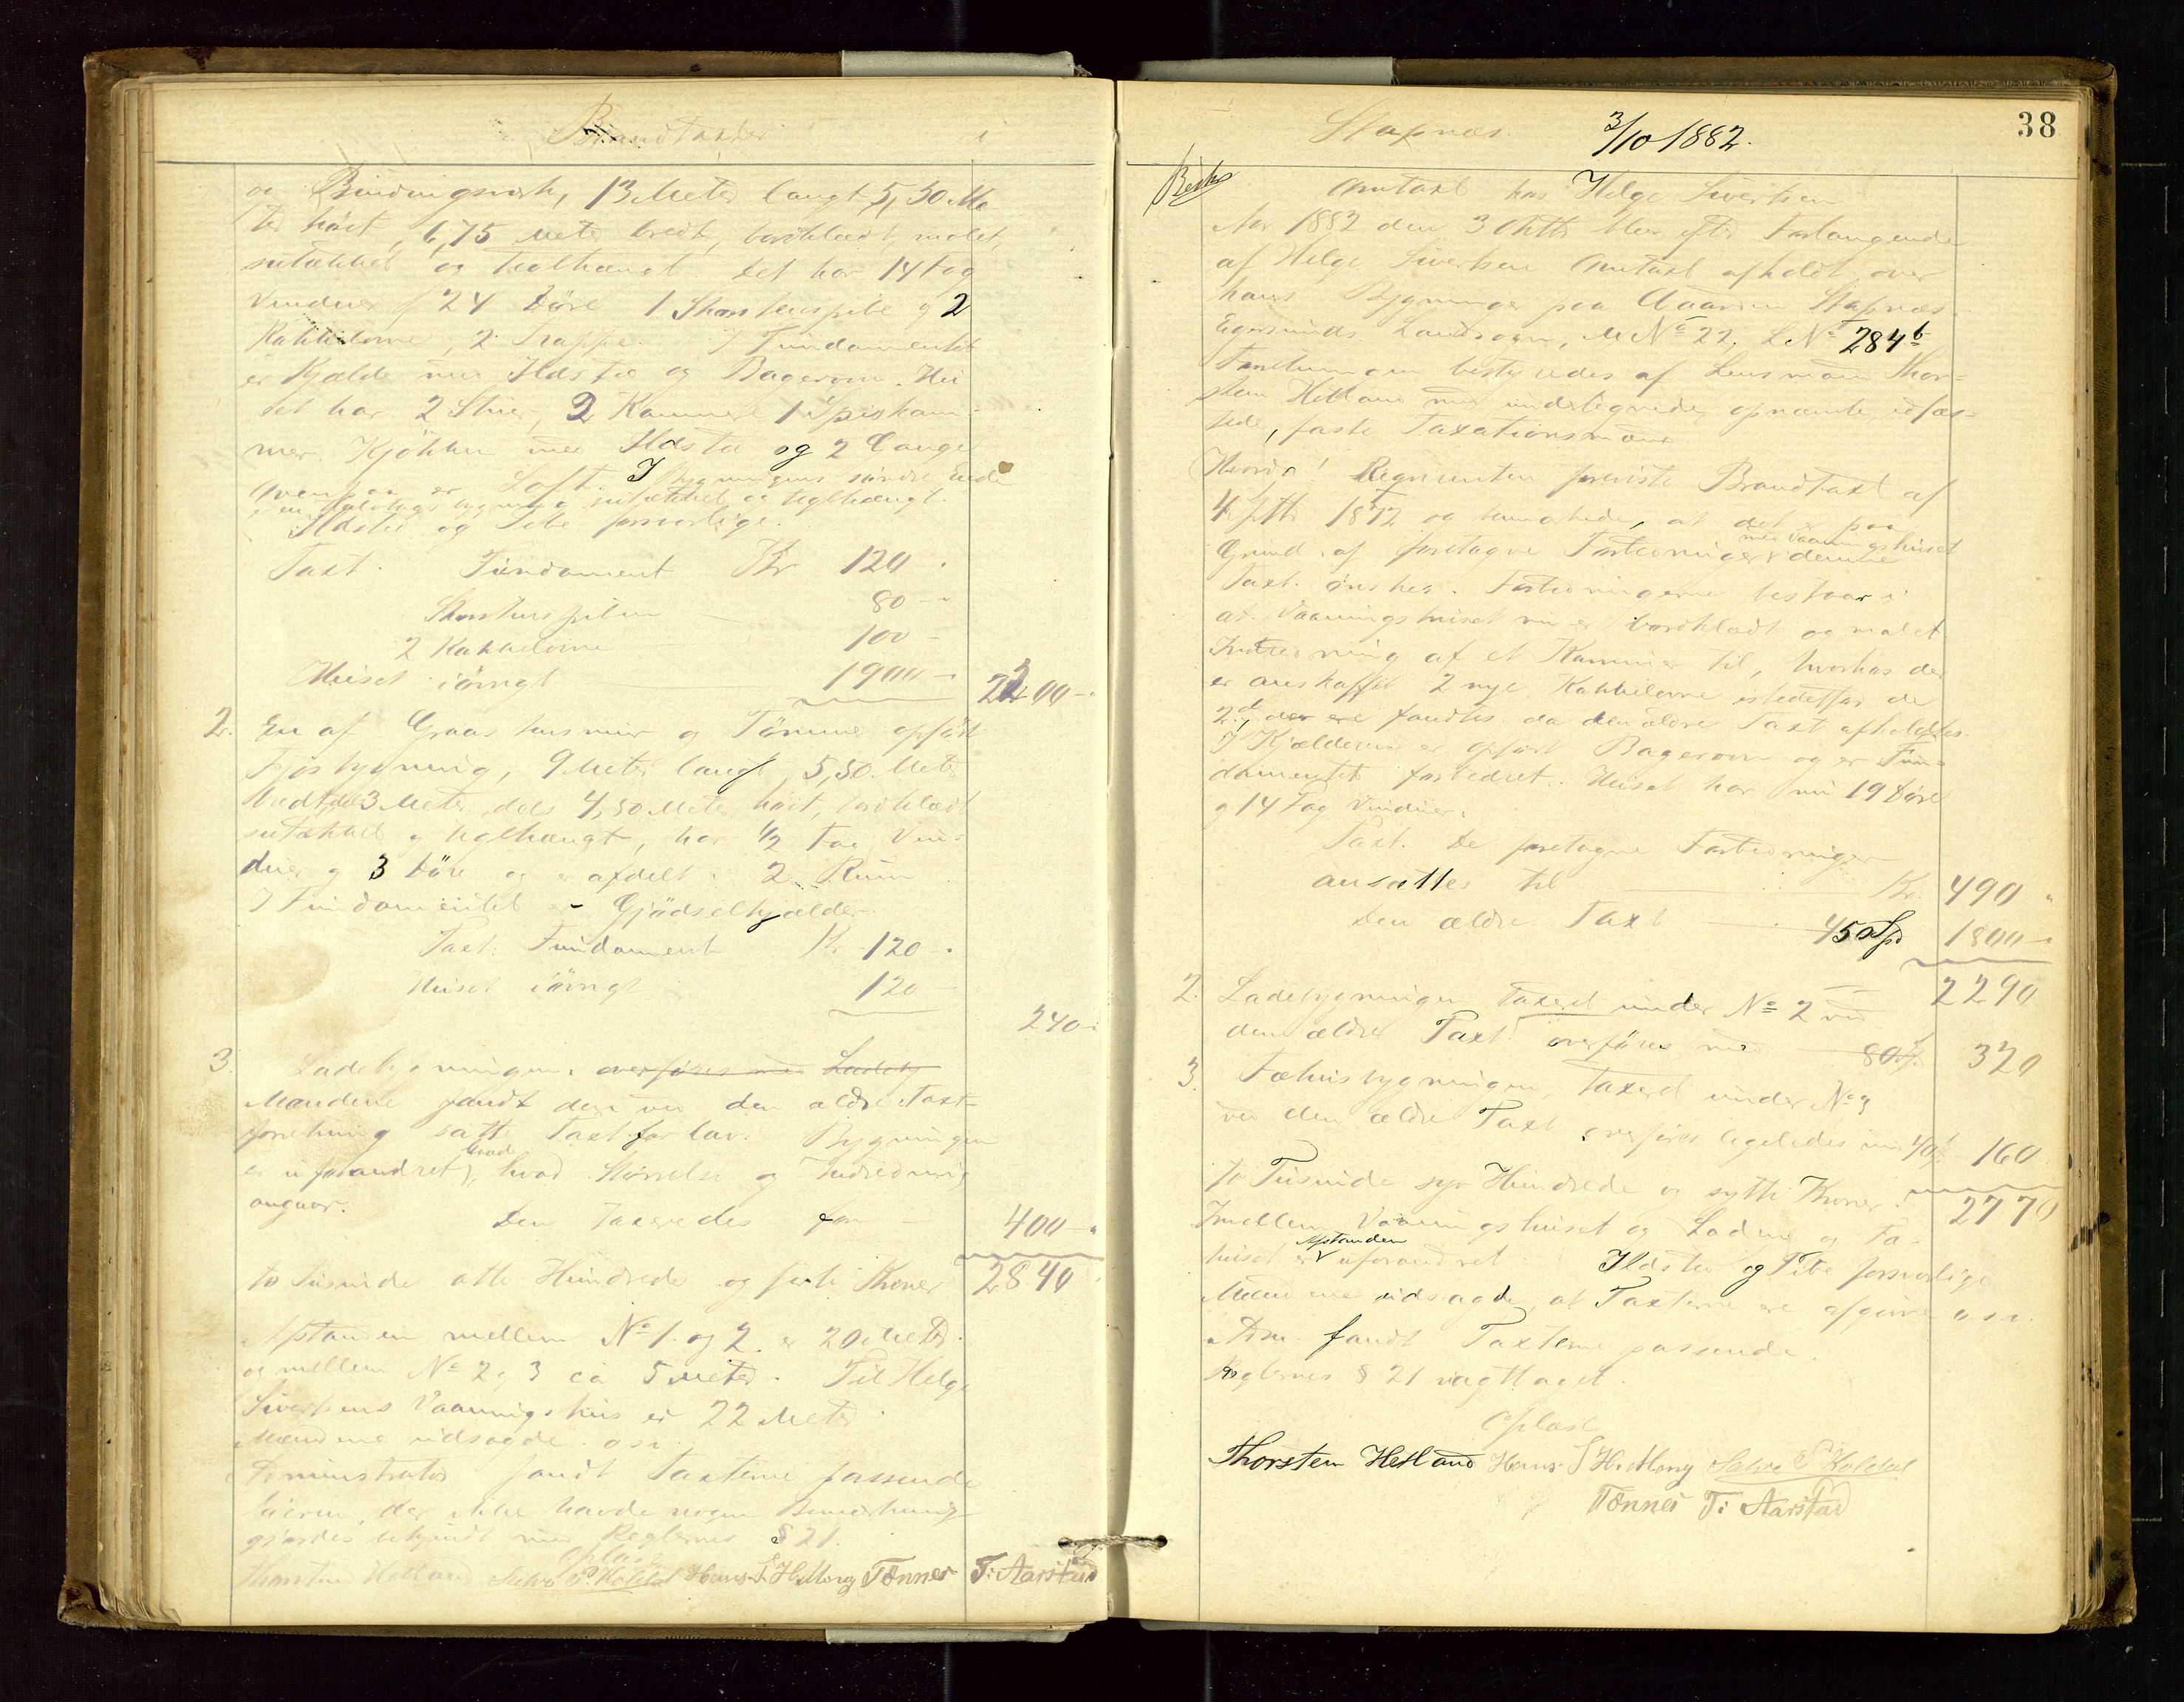 Brandtaxter i
og Bindingsverk, 13 Meter langt 5,50 Me
ter höit, 6,75 Meter bredt, bordklædt, malet,
sutækket og teglhængt. Det har 14 Fag
Vinduer 24 Döre 1 Skorstenspibe og 2
Kakkelovne, 2 Trapper. I Fundamentet
er Kjælder med Ildsted og Bagerovn. Hu
set har 2 Stuer, 2 Kammere 1 Spiskam-
mer. Kjökken med Ildsted og 2 Gange
Ovenpaa er Loft. I bygningens söndre Ende
er en Halvtags bygning sutækket og teglhængt.
Ildsted og Pibe forsvarlige.
Taxt. Fundament Kr 120 "
Skorstenspiben 80 - "
2 Kakkelovne 100 -
Huset iövrigt 1900 - " 2200 - "
2. En af Graastensmur og Tömmer opfört
Fjösbygning, 9 Meter langt, 5,50 Meter
bredt, dels 3 Meter, dels 4,50 Meter höit, bordklædt
sutækket og teglhængt, har 1/2 Fag Vin-
duer og 3 Döre og er afdelt i 2 Rum
I Fundamentet er Gjödselkjælder.
Taxt. Fundament Kr 120 - "
Huset iövrigt 120 -
240 - "
3. Ladebygningen. overföres med Ladeby
Mændene fandt den ved den ældre Taxt-
forretning satt Taxt for lav. Bygningen
er uforandret, hvad Störrelse og Indredning
angaar.
Den taxeredes for - 400 - "
to Tusinde otte Hundrede og förti Kroner 2840
Afstanden mellem No 1 og 2 er 20 Meter
og mellem No 2 og 3 ca 5 Meter. Til Helge
Sivertsens Vaaningshus er 22 Meter
Mændene udsagde. osv.
Administrator fandt Taxterne passende
Eieren, der ikke havde nogen Bemærkning
gjordes bekjendt med Reglernes § 21.
Oplæst
Thorsten Hetland Salve P. Koldal Hans S. H. Mong Tönnes T: Aarstad
Stapnæs. 3/10 1882. 38
Omtaxt hos Helge Sivertsen
Aar 1882 den 3 Oktbr blev efter Forlangende
af Helge Sivertsen Omtaxt afholdt over
hans Bygninger paa Gaarden Stapnæs
Egersunds Landsogn, M No 22, L No 284 b
Forretningen bestyredes af Lensmand Thor-
sten Hetland med undertegnede opnævnte edfæs-
tede, faste Taxationsmænd
Hvorda! Reqvirenten foreviste Brandtaxt af
4 Sptbr 1872 og bemærkede, at det paa
med Vaaningshuset
Grund af foretagne Forbedringer denne
Taxt önskes. Forbedringerne bestaar i
at Vaaningshuset nu er bordklædt og malet
Indredning af et Kammer til, hvorhos der
er anskaffet 2 nye Kakkelovne istedetfor de
2de, der fandtes da den ældre Taxt afholdtes.
I Kjælderen er opfört Bagerovn og er Fun-
damentet forbedret. Huset har nu 19 Döre
og 14 Fag Vinduer.
Taxt. De foretagne Forbedringer
ansattes til Kr. 490 "
Den ældre Taxt 450 Spd 1800 - "
2290
2. Ladebygningen taxeret under No 2 ved
den ældre Taxt overföres med 80 Spd 320
3. Fæhusbygningen, taxeret under No 3
ved den ældre Taxt overföres ligeledes med 40 160
to Tusinde syv Hundrede og sytti Kroner 2770
Imellem Vaaningshuset og Laden og Fæ-
huset er Afstanden uforandret. Ildsted og Pibe forsvarlige
Mændene udsagde, at Taxterne ere afgivne osv.
Adm. fandt Taxterne passende.
Reglernes § 21 iagttaget.
Oplæst
Thorsten Hetland Hans S H. Mong Salve P. Koldal
Tönnes T: Aarstad